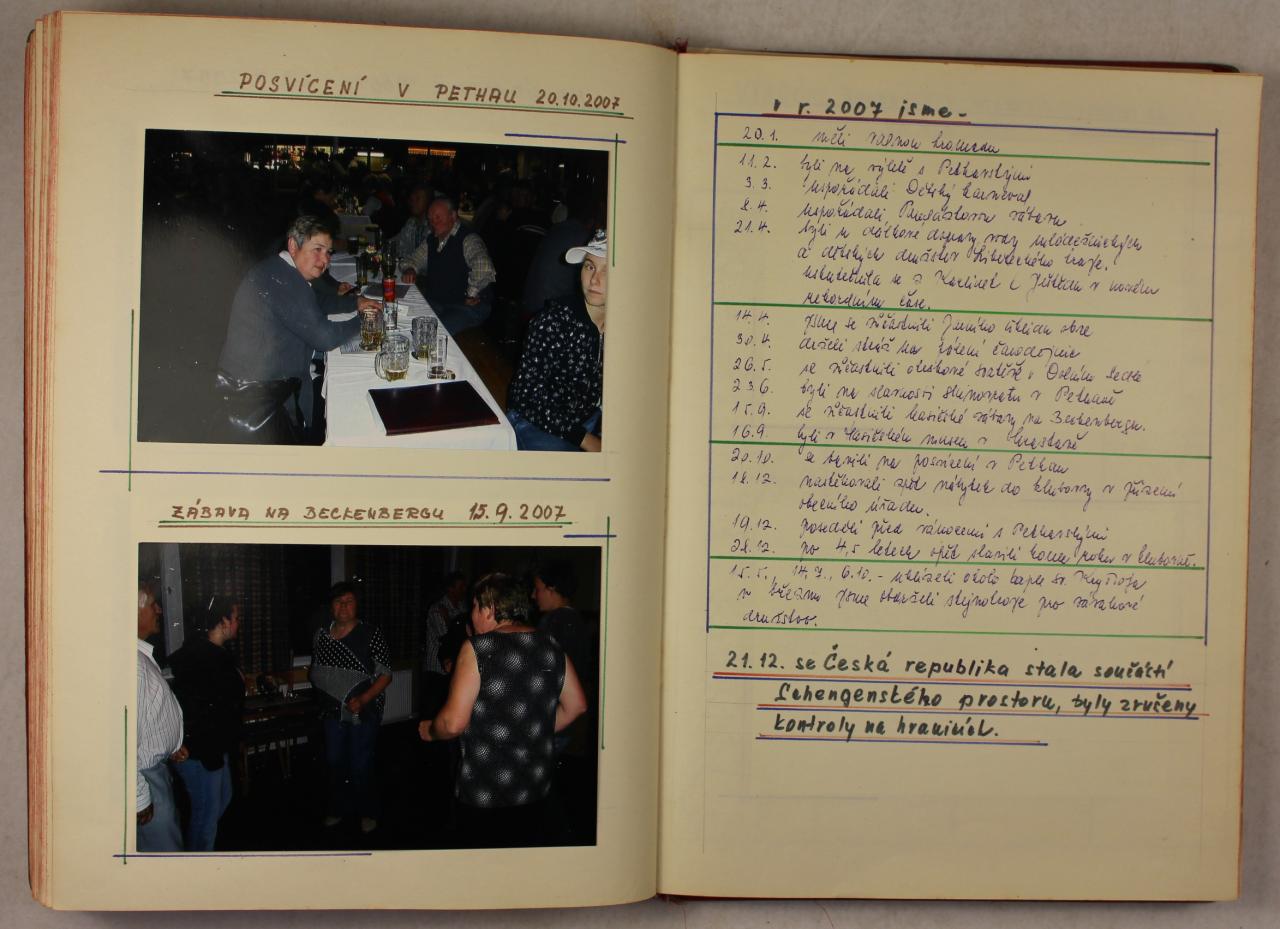 POSVÍCENÍ V PETHAU 20.10.2007
ZÁBAVA NA BECKENBERGU 15.9.2007
v r. 2007 jsme -
20.1. měli valnou hromadu
11.2. byli na výletě s Pethauskými
3.3. uspořádali Dětský karneval
8.4. uspořádali zábavu
21.4. byli u dálkové dopravy vody mládežnických
a dětských družstev Libereckého kraje.
uskutečnila se z Karlinek k Ještědu v novém
rekordním čase.
14.4. jsme se zúčastnili Jarního úklidu obce
30.4. drželi stráž na pálení čarodejnic
26.5. se zúčastnili okrskové soutěže v Dolním
23.6. byli na slavnosti slunovratu v Pethauě
15.9. se zúčastnili hasičské zábavy na Beckenbergu.
16.9. byli v Hasičském museu v
20.10. se bavili na posvícení v Pethau
18.12. nastěhovali zpět nábytek do klubovny v přízemí
obecního úřadu.
19.12. poseděli před vánocemi s Pethauskými
28.12. po 4,5 letech opět slavili konec roku v klubovně.
15.5., 14.7., 6.10. - uklízeli okolo kaple sv. Kryštofa
v březnu jsme obdrželi stejnokroje pro zásahové
družstvo.
21.12. se Česká republika stala součástí
Schengenského prostoru, byly zrušeny
kontroly na hranicích.